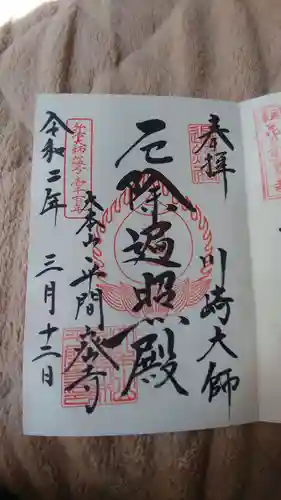 奉拝
川崎大師
厄除遍照殿
大本山 平間寺
令和二年 三月十二日